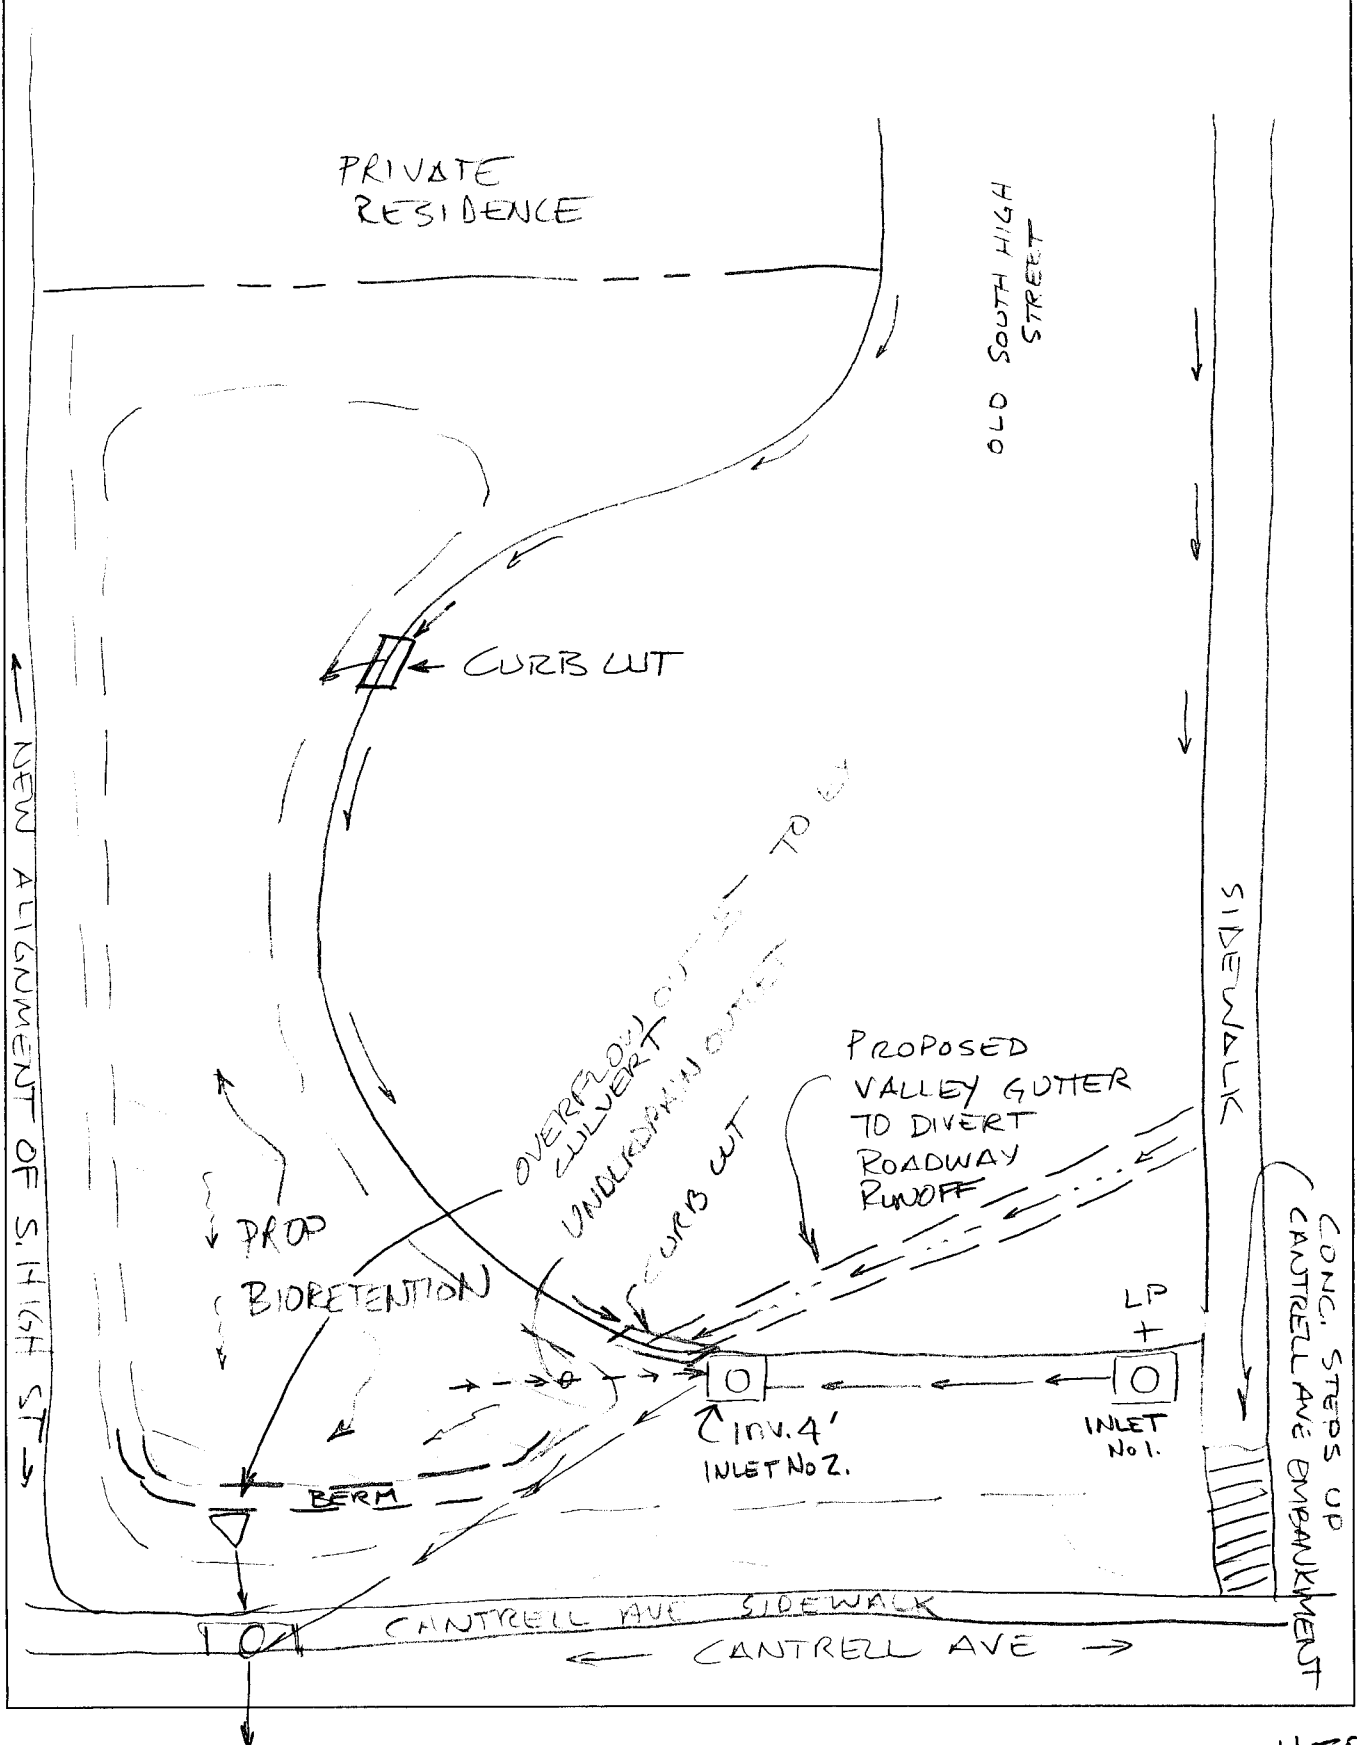 PRIVATE
RESIDENCE
OLD SOUTH HIGH
STREET
CURB CUT
← NEW ALIGNMENT OF S. HIGH ST →
SIDEWALK
OVERFLOW OUT'S — TO EX
CULVERT
UNDERDRAIN OUTLET
CURB CUT
PROPOSED
VALLEY GUTTER
TO DIVERT
ROADWAY
RUNOFF
CONC. STEPS UP
CANTRELL AVE EMBANKMENT
PROP
BIORETENTION
LP
+
INV. 4'
INLET No 2.
INLET
No 1.
BERM
CANTRELL AVE SIDEWALK
← CANTRELL AVE →